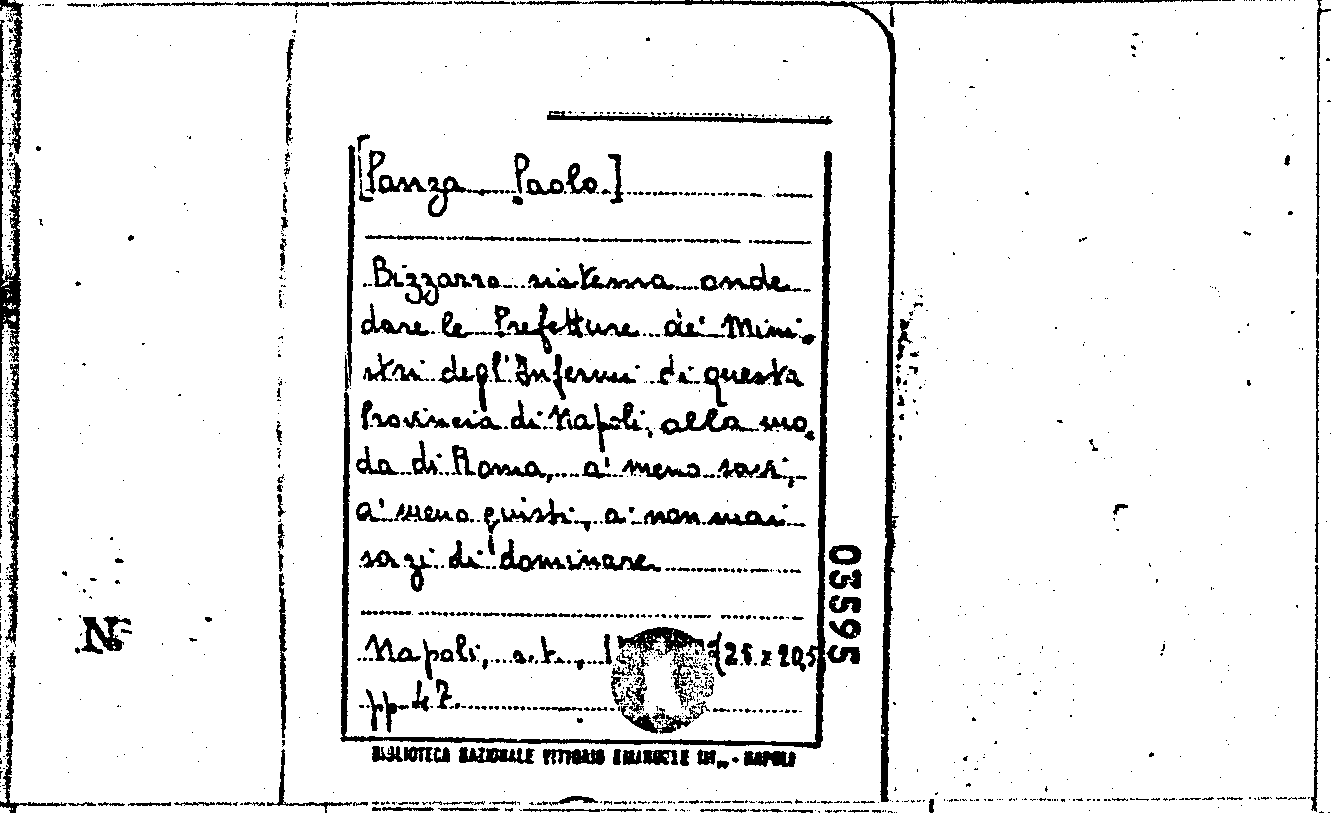 [Panza Paolo]
Bizzarro sistema onde
dare le Prefetture de' Mini-
stri degl'Infermi di questa
Provincia di Napoli, alla mo-
da di Roma, a' meno savi,
a' meno giusti, a' non mai
sazi di dominare
Napoli, s.t., (25 x 20,5
pp. 47.
BIBLIOTECA NAZIONALE VITTORIO EMANUELE III - NAPOLI
03595
N°